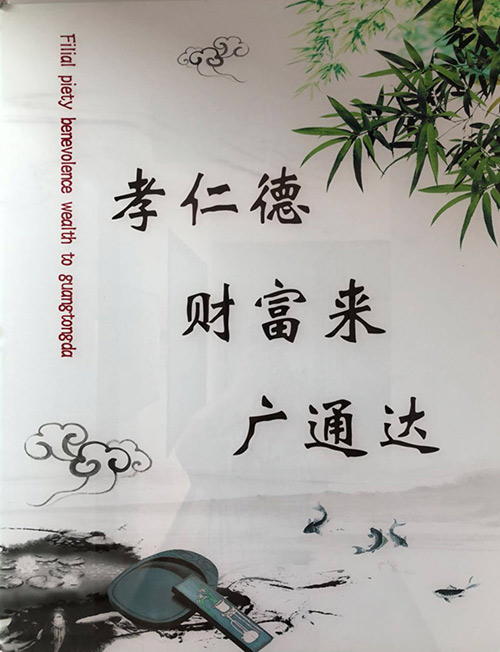 Filial piety benevolence wealth to guangtongda
孝仁德
财富来
广通达